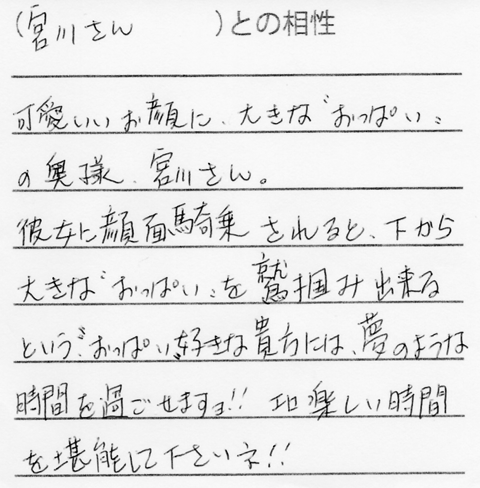 (宮川さん　　　)との相性
可愛いいお顔に、大きな〝おっぱい〟
の奥様、宮川さん。
彼女に顔面騎乗されると、下から
大きな〝おっぱい〟を鷲掴み出来る
という〝おっぱい〟好きな貴方には、夢のような
時間を過ごせますョ!! エロ楽しい時間
を堪能して下さいネ!!